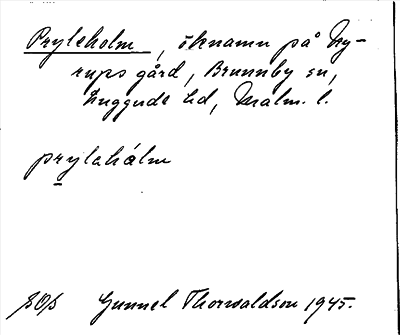 Pryleholm, öknamn på Ny-
rups gård, Brunnby sn,
Luggude hd, Malm. l.
prylahálm
Gunnel Thorwaldson 1945.